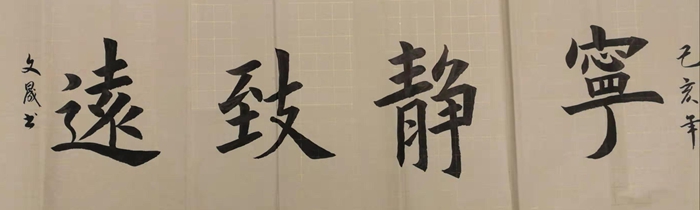 己亥年
寧靜致遠
文晟书